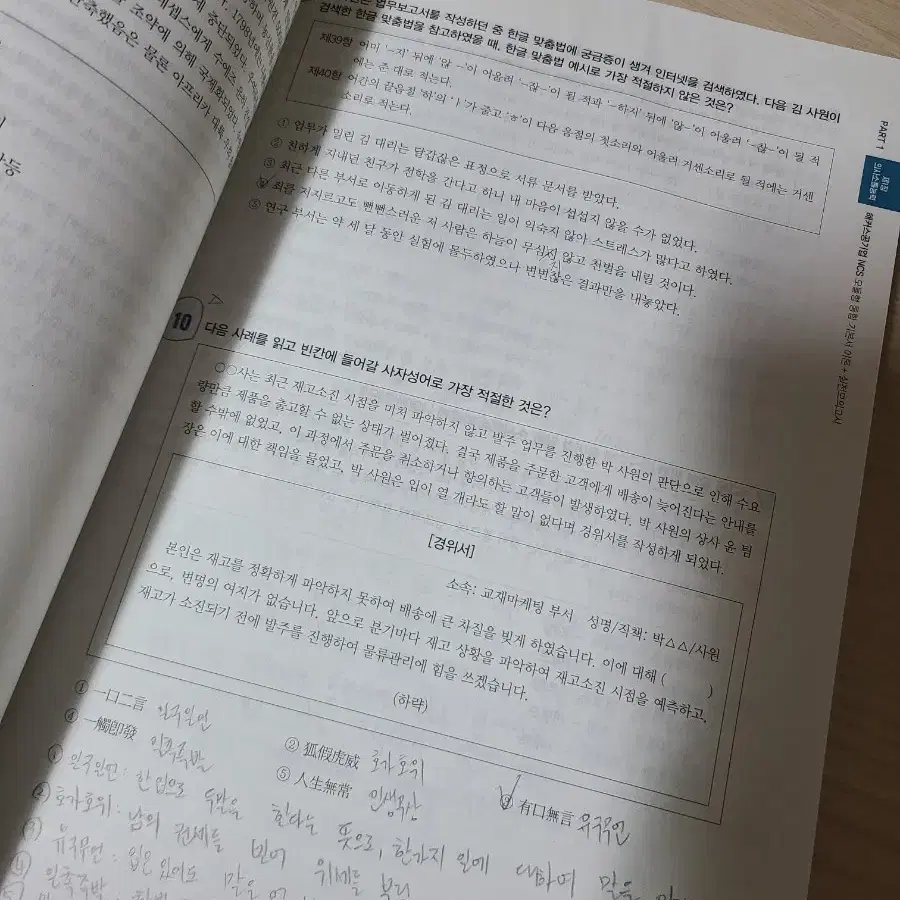 업무보고서를 작성하던 중 한글 맞춤법에 궁금증이 생겨 인터넷을 검색하였다. 다음 김 사원이
검색한 한글 맞춤법을 참고하였을 때, 한글 맞춤법 예시로 가장 적절하지 않은 것은?
제39항 어미 '-지' 뒤에 '않-'이 어울려 '-잖-'이 될 적과 '-하지' 뒤에 '않-'이 어울려 '-찮-'이 될 적
에는 준 대로 적는다.
제40항 어간의 끝음절 '하'의 'ㅏ'가 줄고 'ㅎ'이 다음 음절의 첫소리와 어울려 거센소리로 될 적에는 거센
소리로 적는다.
① 업무가 밀린 김 대리는 달갑잖은 표정으로 서류 문서를 받았다.
② 친하게 지내던 친구가 전학을 간다고 하니 내 마음이 섭섭지 않을 수가 없었다.
③ 최근 다른 부서로 이동하게 된 김 대리는 일이 익숙지 않아 스트레스가 많다고 하였다.
④ 죄를 저지르고도 뻔뻔스러운 저 사람은 하늘이 무심지 않고 천벌을 내릴 것이다.
치
⑤ 연구 부서는 약 세 달 동안 실험에 몰두하였으나 변변찮은 결과만을 내놓았다.
PART 1
제1장
의사소통능력
해커스공기업 NCS 모듈형 통합 기본서 이론 + 실전모의고사
10 다음 사례를 읽고 빈칸에 들어갈 사자성어로 가장 적절한 것은?
○○사는 최근 재고소진 시점을 미처 파악하지 않고 발주 업무를 진행한 박 사원의 판단으로 인해 수요
량만큼 제품을 출고할 수 없는 상태가 벌어졌다. 결국 제품을 주문한 고객에게 배송이 늦어진다는 안내를
할 수밖에 없었고, 이 과정에서 주문을 취소하거나 항의하는 고객들이 발생하였다. 박 사원의 상사 윤 팀
장은 이에 대한 책임을 물었고, 박 사원은 입이 열 개라도 할 말이 없다며 경위서를 작성하게 되었다.
[경위서]
소속: 교재마케팅 부서 성명/직책: 박△△/사원
본인은 재고를 정확하게 파악하지 못하여 배송에 큰 차질을 빚게 하였습니다. 이에 대해 ( )
으로, 변명의 여지가 없습니다. 앞으로 분기마다 재고 상황을 파악하여 재고소진 시점을 예측하고,
재고가 소진되기 전에 발주를 진행하여 물류관리에 힘을 쓰겠습니다.
(하략)
① 一口二言 일구일언
② 狐假虎威 호가호위
③ 有口無言 유구무언
④ 一觸卽發 일촉즉발
⑤ 人生無常 인생무상
① 일구일언 : 한 입으로 두말을 한다는 뜻으로, 한가지 일에 대하여 말을
② 호가호위 : 남의 권세를 빌어 위세를 부리
③ 유구무언 : 입은 있어도 말은
④ 일촉즉발 :